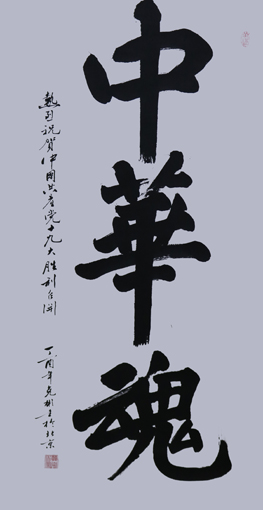 中華魂
熱烈祝賀中國共產党十九大勝利召開
丁酉年克
於北京